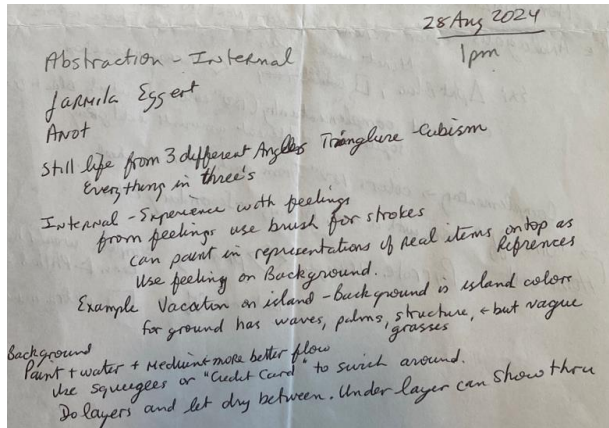 28 Aug 2024
1pm
Abstraction - Internal
Jarmila Eggert
Anot
Still life from 3 different Angles Trianglure - Cubism
Everything in three's
Internal - Experience with feelings
from feelings use brush for strokes
can paint in representations of real items on top as
Refrences
Use feeling on Background.
Example Vacation on island - Background is island colors
for ground has waves, palms, structure, + but vague
grasses
Background
Paint + water + Medium more better flow
Use squeegees or "Credit Card" to swich around.
Do layers and let dry between. Under layer can show thru